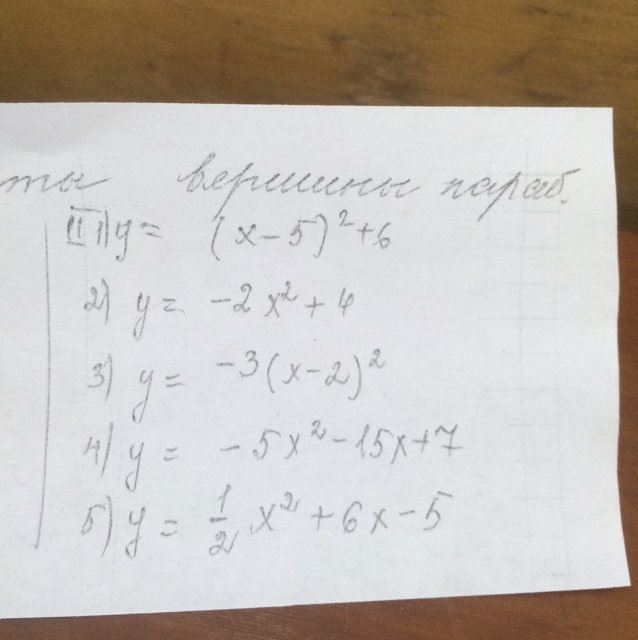 ты вершины параб.
II 1) y = (x-5)² + 6
2) y = -2x² + 4
3) y = -3(x-2)²
4) y = -5x² - 15x + 7
5) y = 1/2 x² + 6x - 5